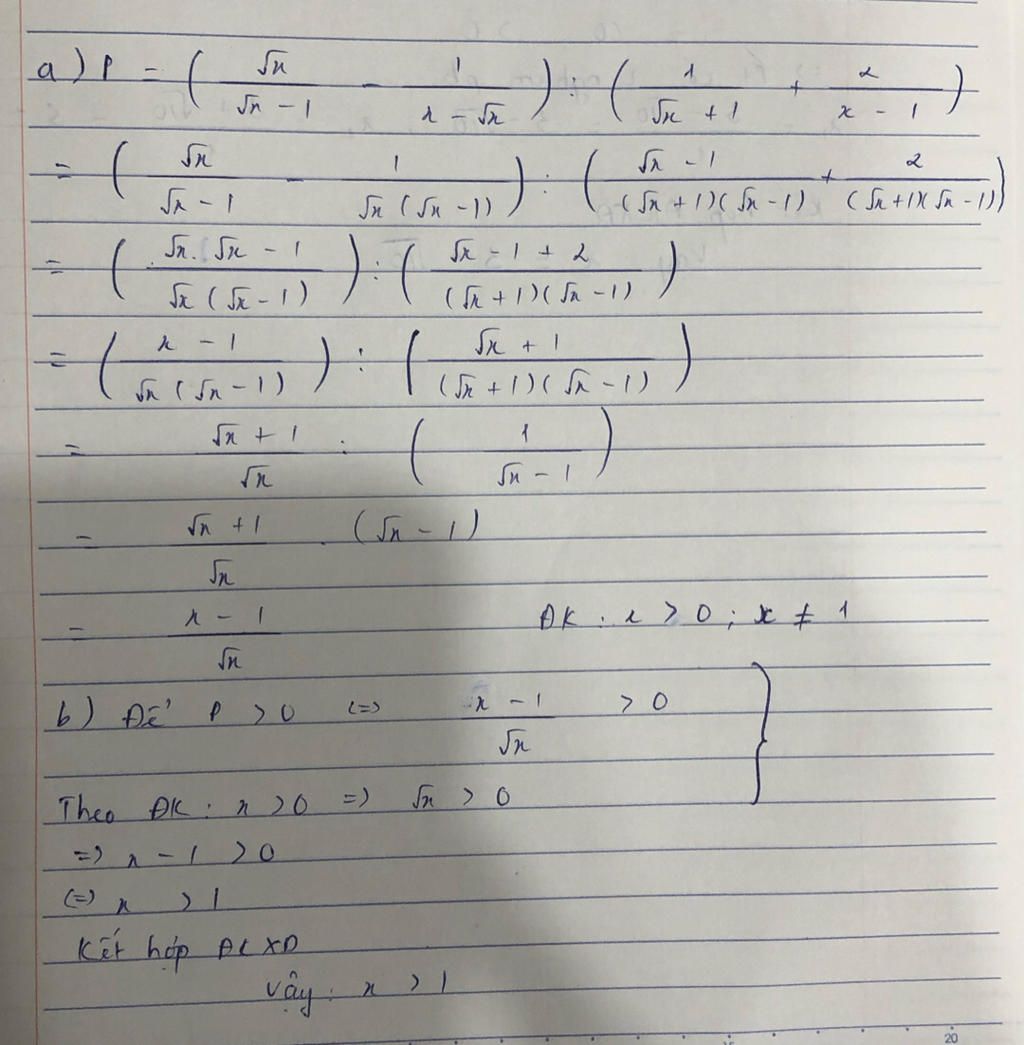 a) P = ( √x / (√x - 1) - 1 / (x - √x) ) : ( 1 / (√x + 1) + 2 / (x - 1) )
= ( √x / (√x - 1) - 1 / (√x (√x - 1)) ) : ( (√x - 1) / ((√x + 1)(√x - 1)) + 2 / ((√x + 1)(√x - 1)) )
= ( (√x . √x - 1) / (√x (√x - 1)) ) : ( (√x - 1 + 2) / ((√x + 1)(√x - 1)) )
= ( (x - 1) / (√x (√x - 1)) ) : ( (√x + 1) / ((√x + 1)(√x - 1)) )
= (√x + 1) / √x : ( 1 / (√x - 1) )
= (√x + 1) / √x . (√x - 1)
= (x - 1) / √x ĐK : x > 0 ; x ≠ 1
b) Để P > 0 (=) (x - 1) / √x > 0 }
Theo ĐK : x > 0 =) √x > 0
=) x - 1 > 0
(=) x > 1
Kết hợp ĐKXĐ
Vậy : x > 1
20